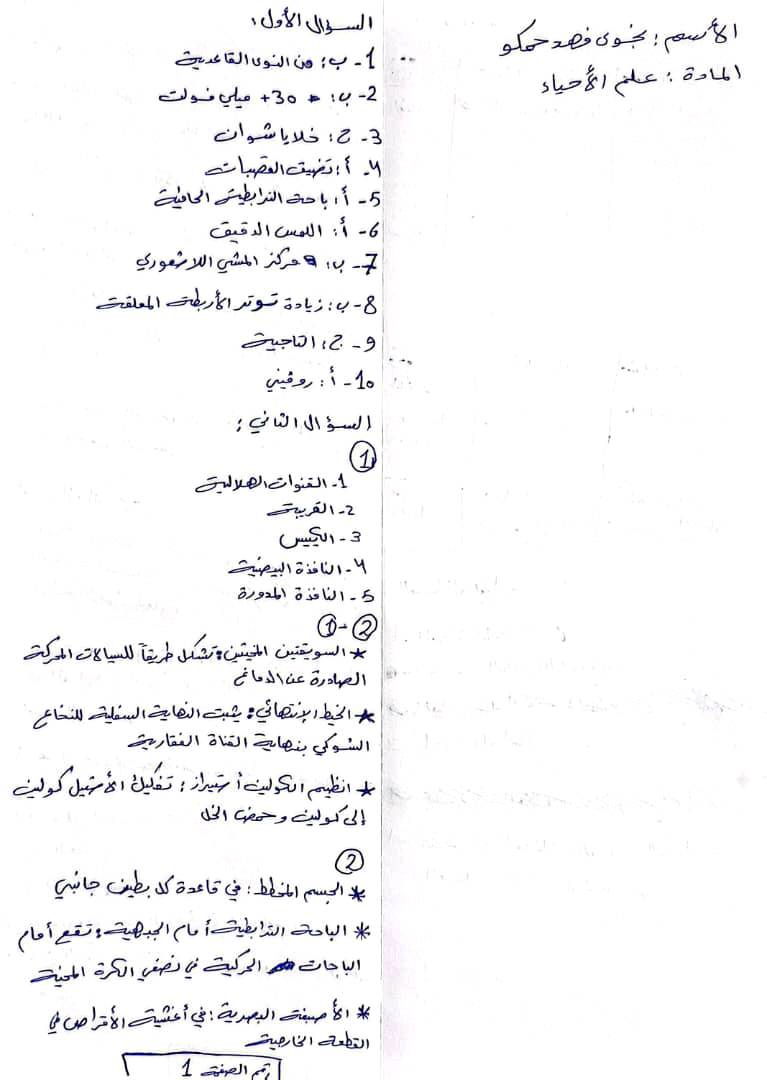 الأسم : نجوى فهد حمكو
المادة : علم الأحياء
السؤال الأول :
1- ب : من النوى القاعدية
2- ب : +30 ميلي فولت
3- ج : خلايا شوان
4- أ : تضيق القصبات
5- أ : باحة الترابطية الحافية
6- أ : اللمس الدقيق
7- ب : مركز المشي اللاشعوري
8- ب : زيادة توتر الأربطة المعلقة
9- ج : التاجية
10- أ : روفيني
السؤال الثاني :
1
1- القنوات الهلالية
2- القريبة
3- الكييس
4- النافذة البيضية
5- النافذة المدورة
2 - 1
* السويقتين المخيتين : تشكل طريقاً للسيالات المحركة
الصادرة عن الدماغ
* الخيط الإنتهائي : يثبت النهاية السفلية للنخاع
الشوكي بنهاية القناة الفقارية
* انظيم الكولين أستيراز : تفكيك الأستيل كولين
إلى كولين وحمض الخل
2
* الجسم المخطط : في قاعدة كل بطين جانبي
* الباحة الترابطية أمام الجبهية : تقع أمام
الباحات الحركية في نصفي الكرة المخية
* الأصبغة البصرية : في أغشية الأقراص في
القطعة الخارجية
رقم الصفحة 1